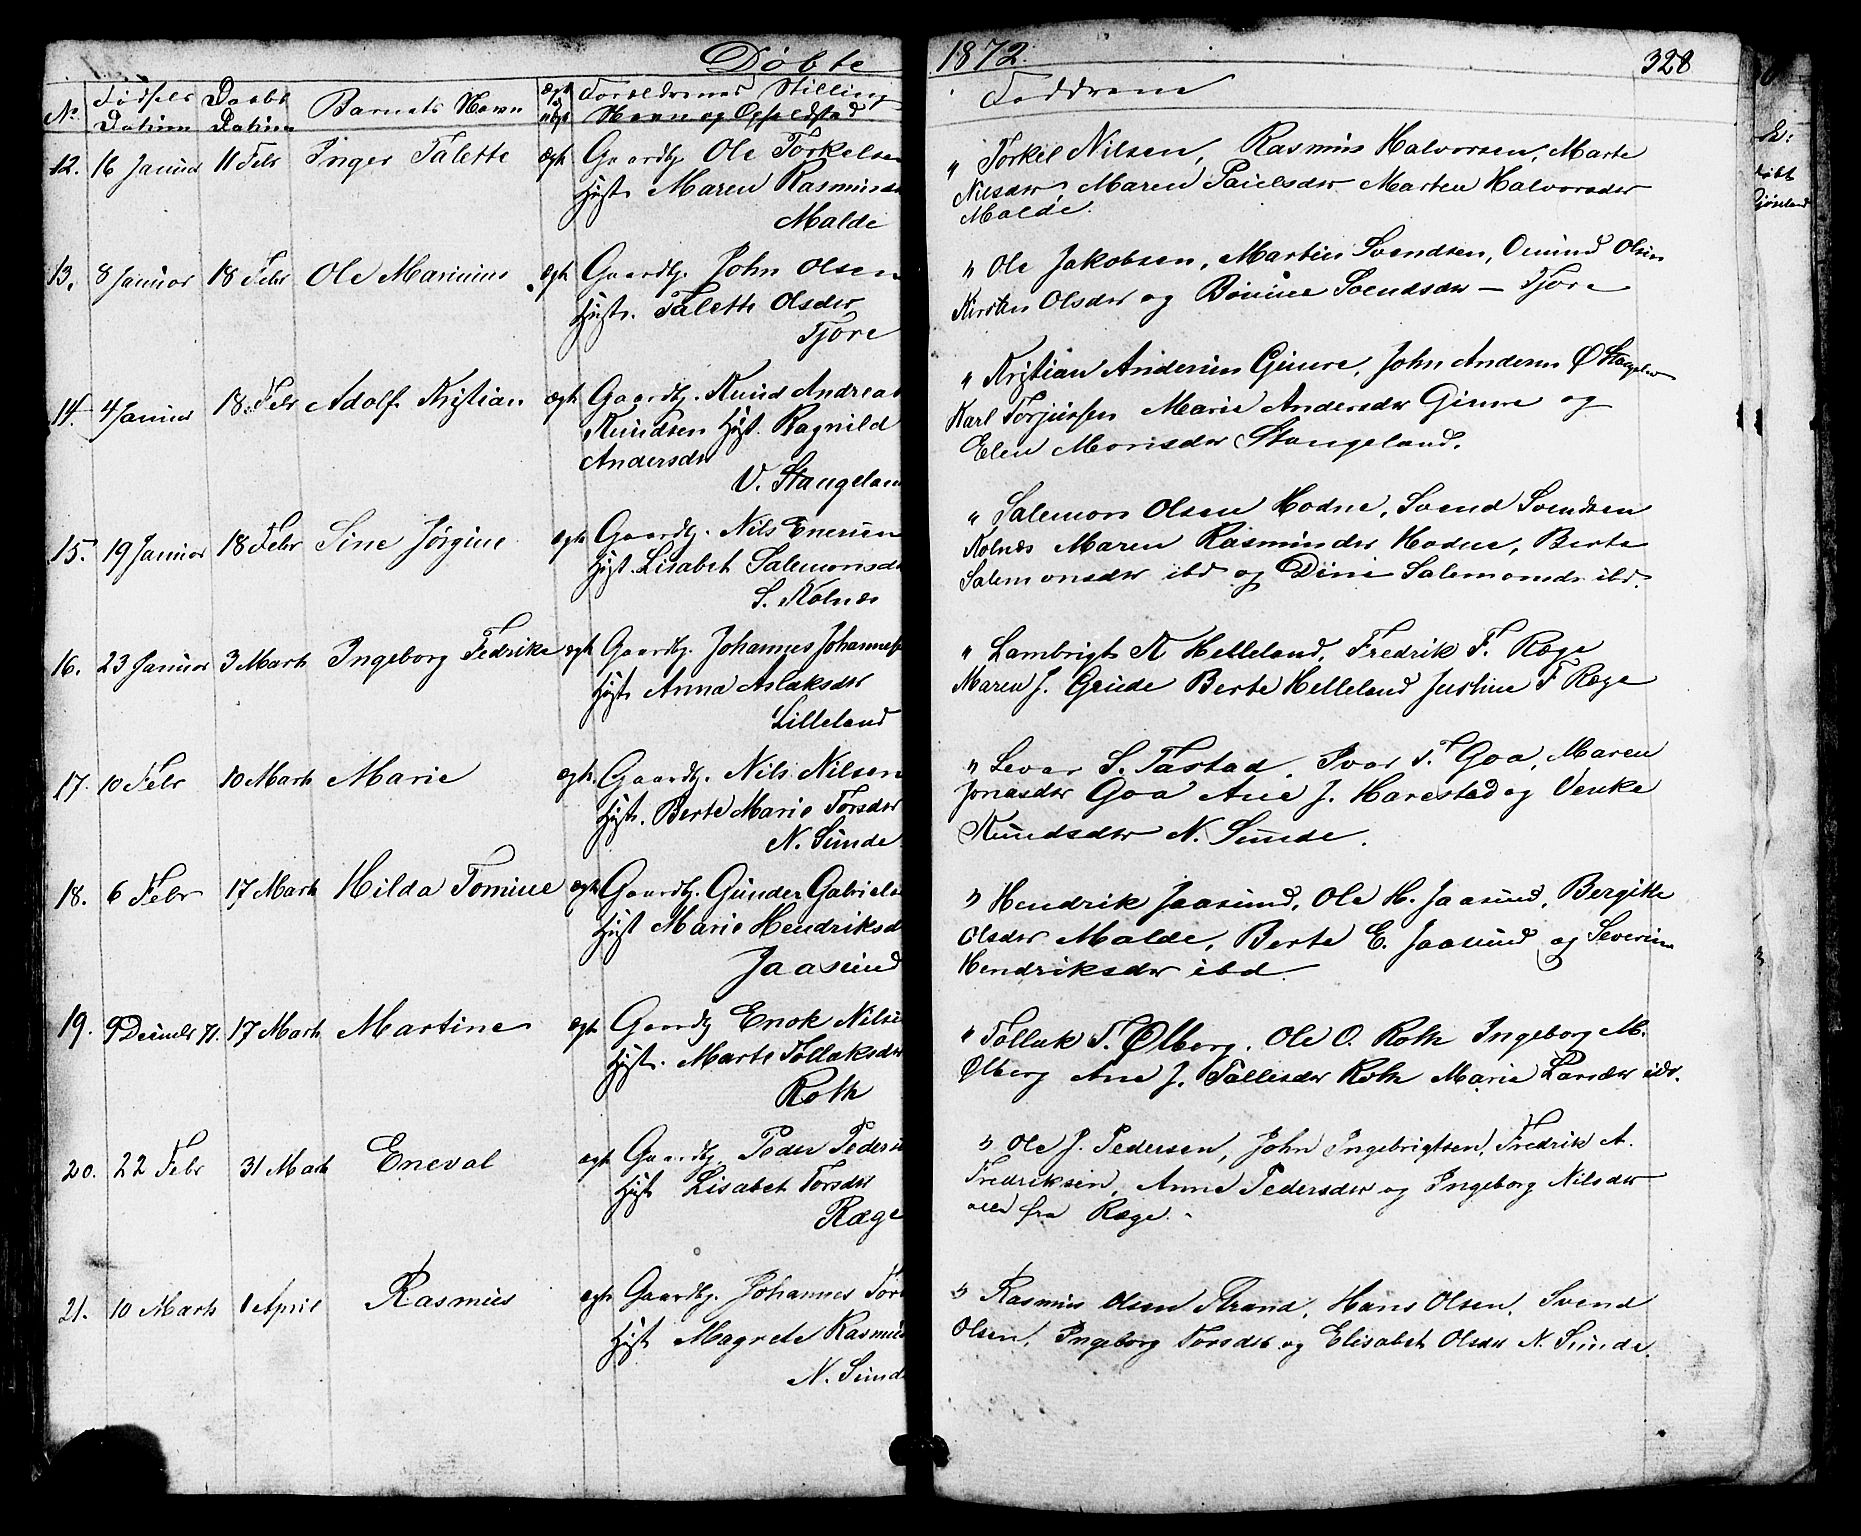 Döbte 1872. 328
No Fødsels Datum Daabs Datum Barnets Navn ægt uægt Forældrenes Stilling Navn og Opholdsted Faddrene
12. 16 Januar 11 Febr Inger Talette ægt Gaardbr Ole Torkelsen
Hust. Maren Rasmusdr
Malde
" Torkel Nilsen, Rasmus Halvorsen, Marte
Nilsdtr Maren Paulsdtr Marten Halvorsdtr
Malde.
13. 8 Januar 18 Febr Ole Marinius ægt Gaardbr. John Olsen
Hust. Talette Olsdtr
Tjore
" Ole Jakobsen, Martin Svendsen, Omund Olsen
Kirsten Olsdtr og Svendsdtr — Tjore
14. 4 Januar 18. Febr Adolf Kristian ægt Gaardbr. Knud Andreas
Knudsen Hust. Ragnild
Andersdtr
V. Stangelan
" Kristian Andersen Gimre, John Andersen Ø Stangelan
Karl Torjussen Marie Andersdtr Gimre og
Elen Morisdtr Stangeland.
15. 19 Januar 18 Febr Sine Jörgine ægt Gaardbr. Nils Enersen
Hust. Lisabet Salemonsdt
S. Kolnæs
" Salemon Olsen Hodne, Svend Svendsen
Kolnæs Maren Rasmusdtr Hodne, Berte
Salemonsdtr ibd og Dine Salemonsdr ibd.
16. 23 Januar 3 Marts Ingeborg Fedrike ægt Gaardbr. Johannes Johannes
Hust. Anna Aslaksdtr
Lilleland
" Lambrigt A Helleland, Fredrik F. Ræge
Maren J. Grude Berte Helleland Justine F Ræge
17. 10 Febr 10 Marts Marie ægt. Gaardbr. Nils Nilsen
Hust. Berte Marie Torsdtr
N. Sunde
" Sevar S. Tastad, Ivar T. Goa, Maren
Jonasdtr Goa Ane J. Harestad og Venke
Knudsdtr N. Sunde.
18. 6 Febr 17 Marts Hilda Tomine ægt Gaardbr. Gunder Gabriels
Hust Marie Hendriksd
Jaasund
" Hendrik Jaasund, Ole H. Jaasund, Bergitte
Olsdtr Malde, Berte E. Jaasund og Severine
Hendriksdtr ibd
19. 9 Decmbr 71. 17 Marts Martine ægt Gaardbr Enok Nilse
Hust. Marte Tollaksdtr
Roth
" Tollak T. Ølberg, Ole O. Roth Ingeborg M.
Ølberg Ane J. Tollisdtr Roth Marie Larsdtr ibd.
20. 22 Febr 31 Marts Eneval ægt Gaardbr Peder Peders
Hust Lisabet Torsdtr
Ræge
" Ole J. Pedersen, John Ingebrigtsen, Fredrik A.
Fredriksen, Anne Pedersdtr og Ingeborg Nilsdtr
alle fra Ræge.
21. 10 Marts 1 April Rasmus ægt Gaardbr. Johannes Tors
Hust Magrete Rasmus
N. Sund
" Rasmus Olsen Strand, Hans Olsen, Svend
Olsen, Ingeborg Torsdtr og Elisabet Olsdtr N. Sunde.